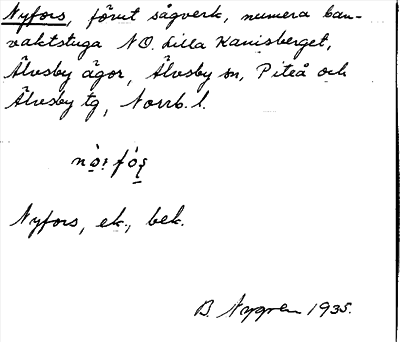 Nyfors, förut sågverk, numera ban-
vaktstuga NO. Lilla Kanisberget,
Älvsby ägor, Älvsby sn, Piteå och
Älvsby tg, Norrb. l.
Nyfors, ek., bek.
B. Nygren 1935.